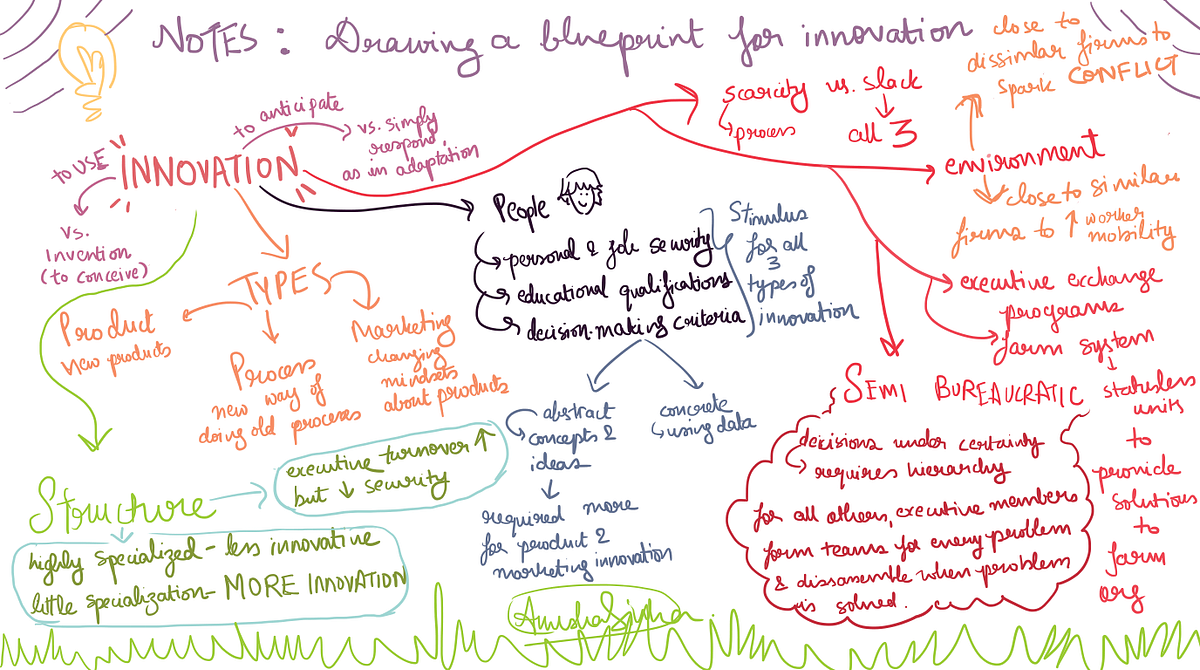 NOTES: Drawing a blueprint for innovation
INNOVATION
to anticipate
vs. simply
respond
as in adaptation
to USE
vs.
Invention
(to conceive)
TYPES
Product
new products
Process
new way of
doing old processes
Marketing
changing
mindsets
about products
Structure
executive turnover ↑
but ↓ security
highly specialized - less innovative
little specialization - MORE INNOVATION
People
personal & job security
educational qualifications
decision-making criteria
Stimulus
for all
3
types of
innovation
abstract
concepts &
ideas
required more
for product &
marketing innovation
concrete
using data
scarcity vs. slack
process
all 3
environment
close to
dissimilar firms to
spark CONFLICT
close to similar
firms to ↑ worker
mobility
executive exchange
programs
farm system
statusless
units
to
provide
solutions
to
farm
org
SEMI BUREAUCRATIC
decisions under certainty
requires hierarchy
for all others, executive members
form teams for every problem
& disassemble when problem
is solved.